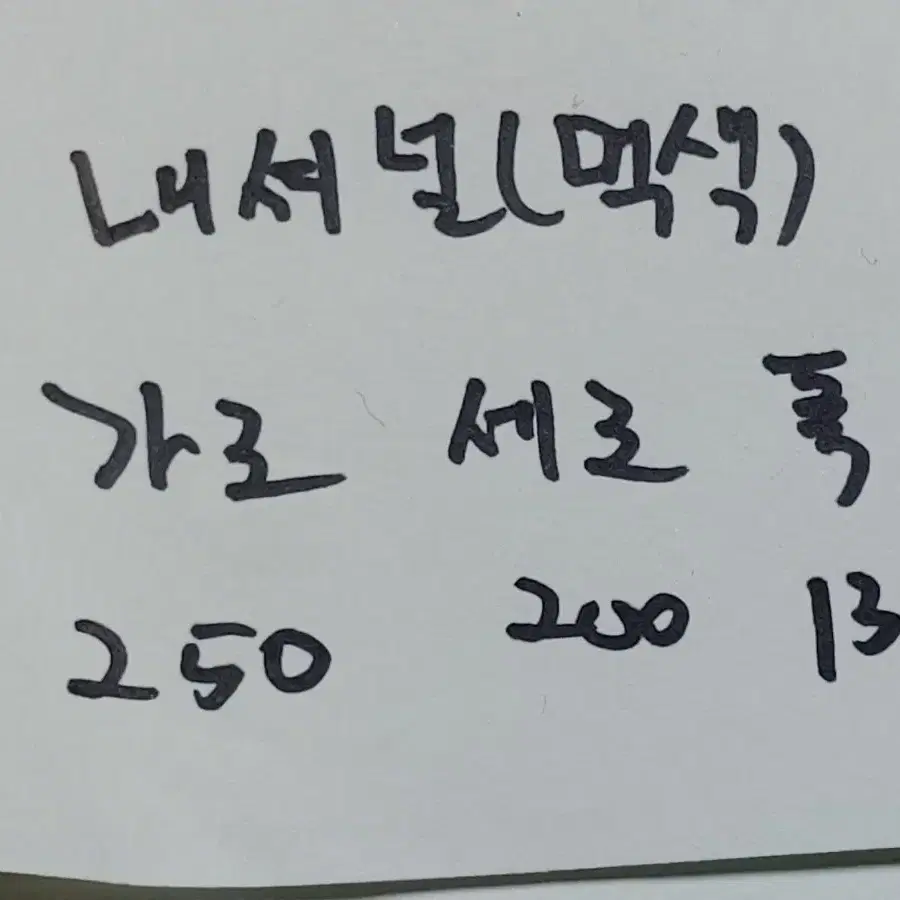 내셔널(맥색)
가로 세로 폭
250 200 13